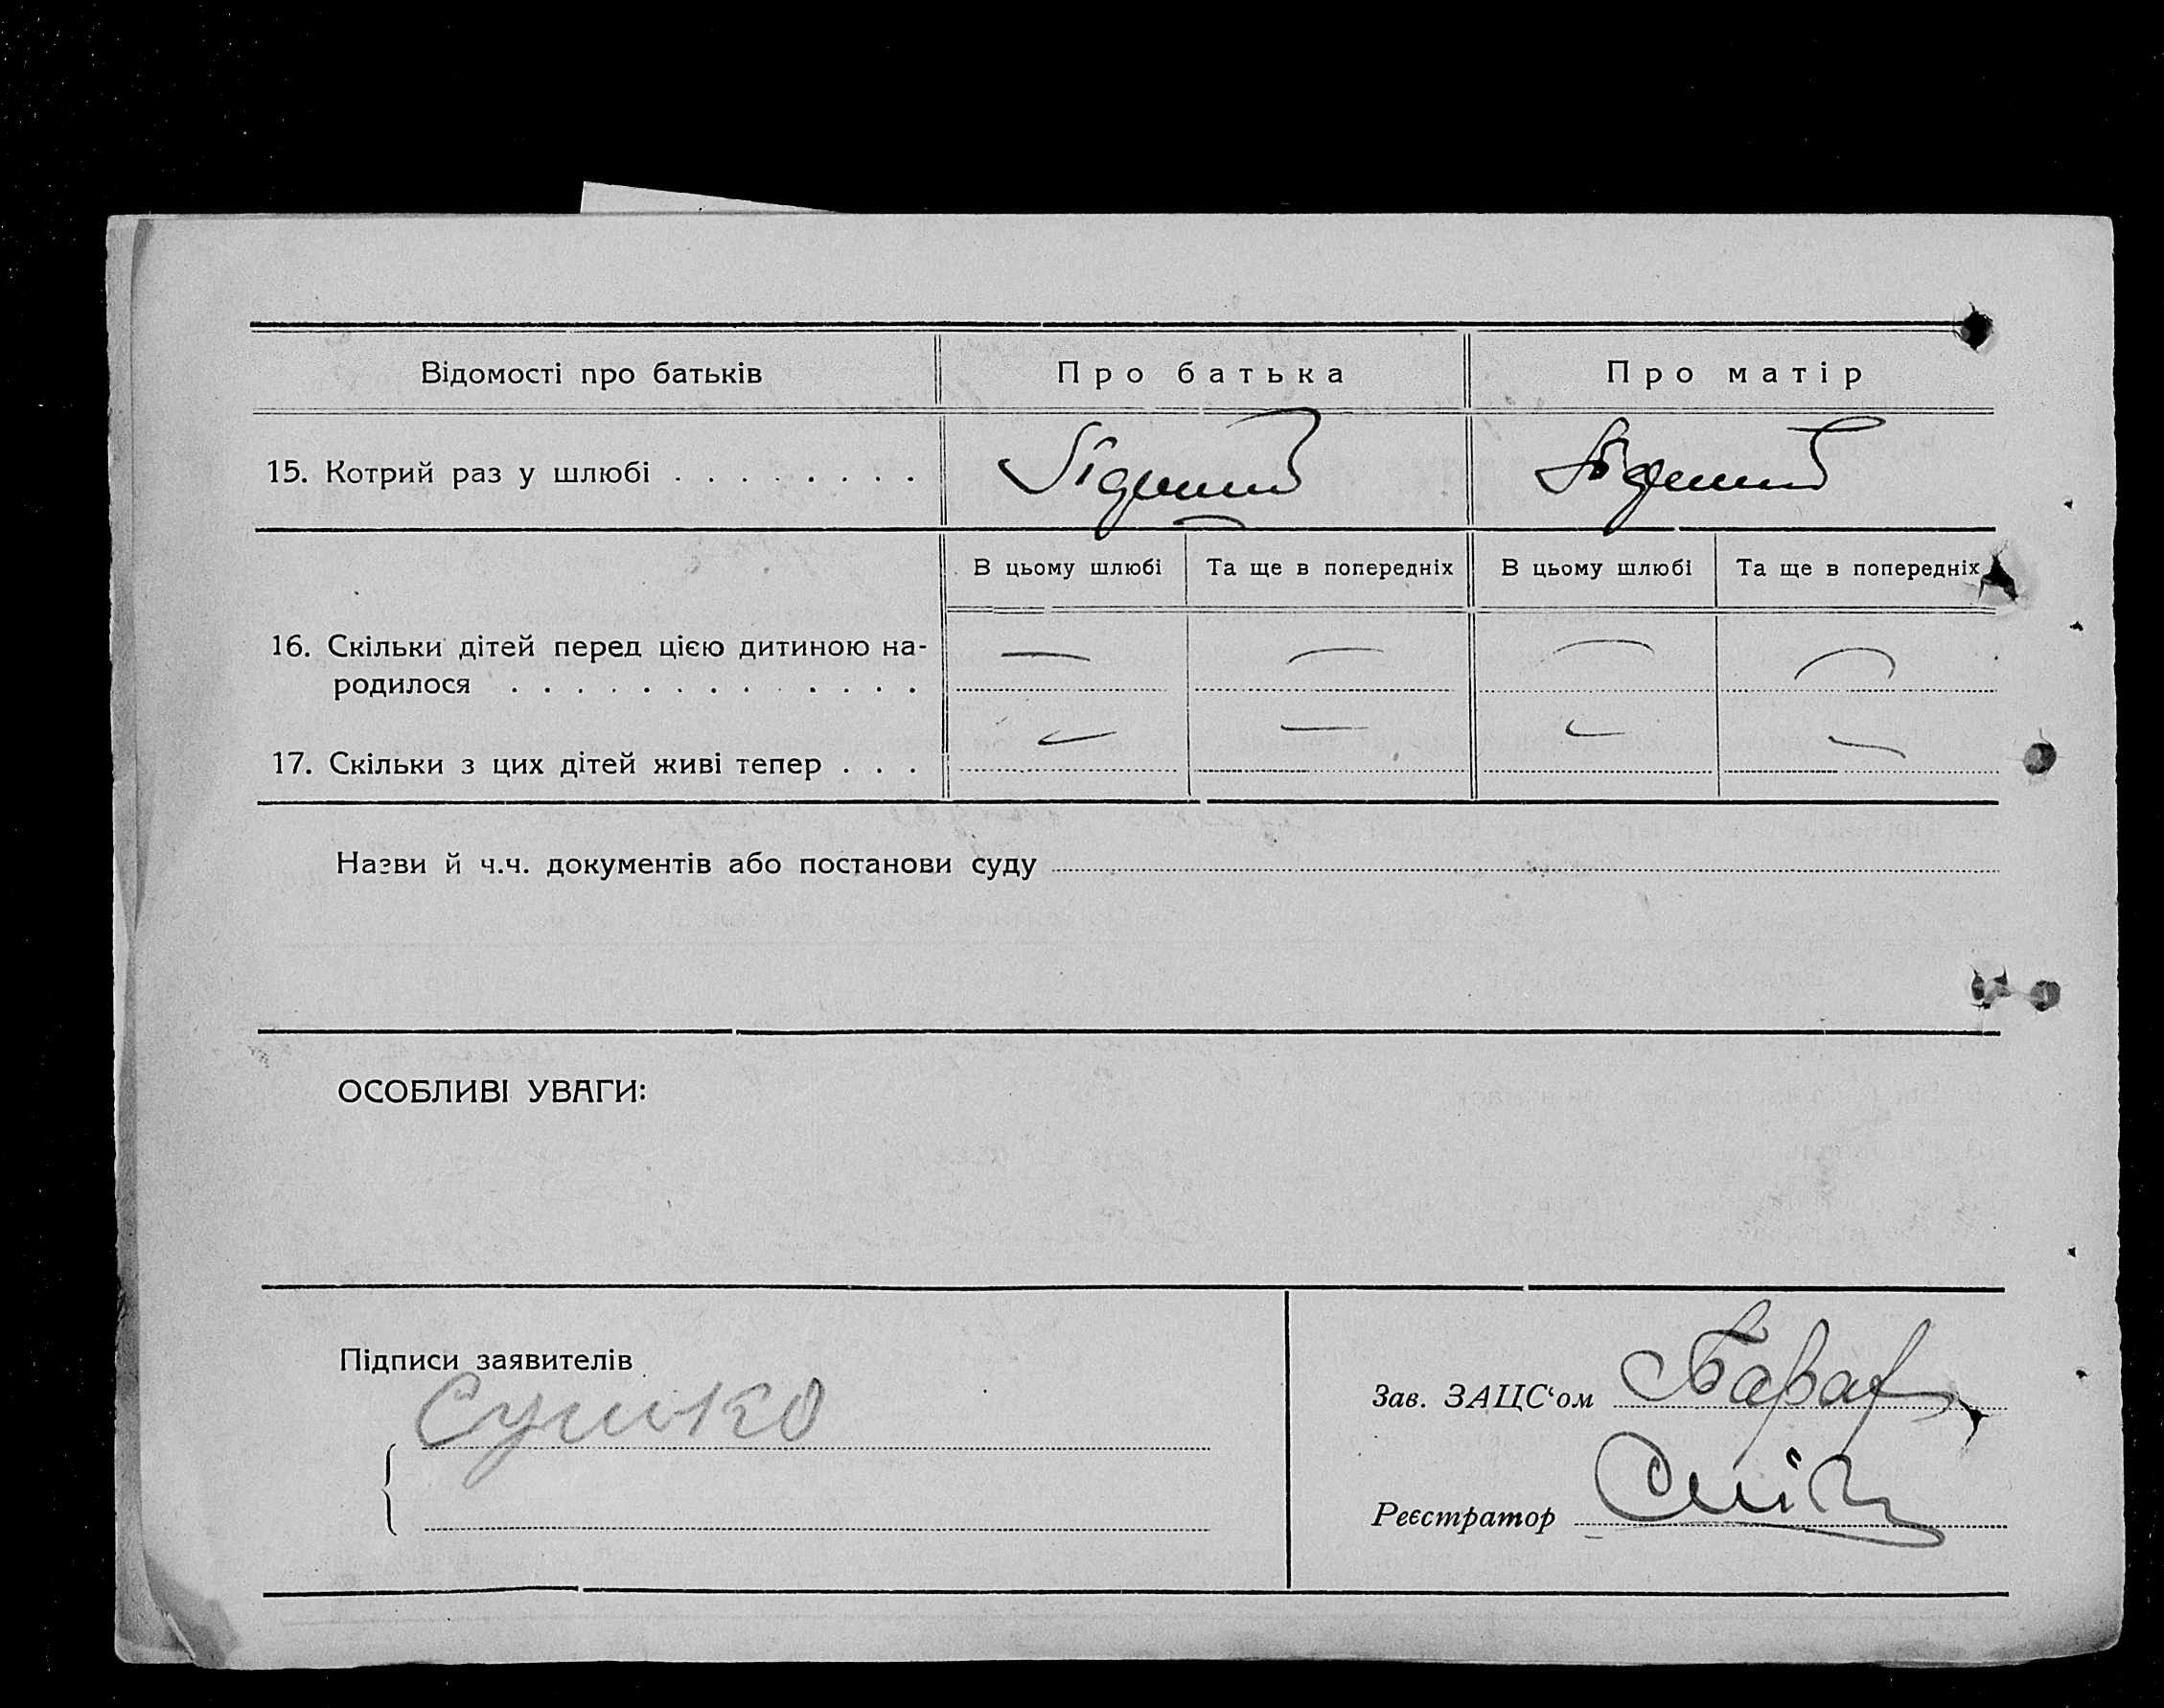 Відомості про батьків
Про батька
Про матір
15. Котрий раз у шлюбі . . . . . . . .
В цьому шлюбі
Та ще в попередніх
В цьому шлюбі
Та ще в попередніх
16. Скільки дітей перед цією дитиною на-
родилося . . . . . . . . . . . . .
— — — —
17. Скільки з цих дітей живі тепер . . .
— — — —
Назви й ч.ч. документів або постанови суду
ОСОБЛИВІ УВАГИ:
Підписи заявителів
Сушко
Зав. ЗАЦС‘ом
Реєстратор